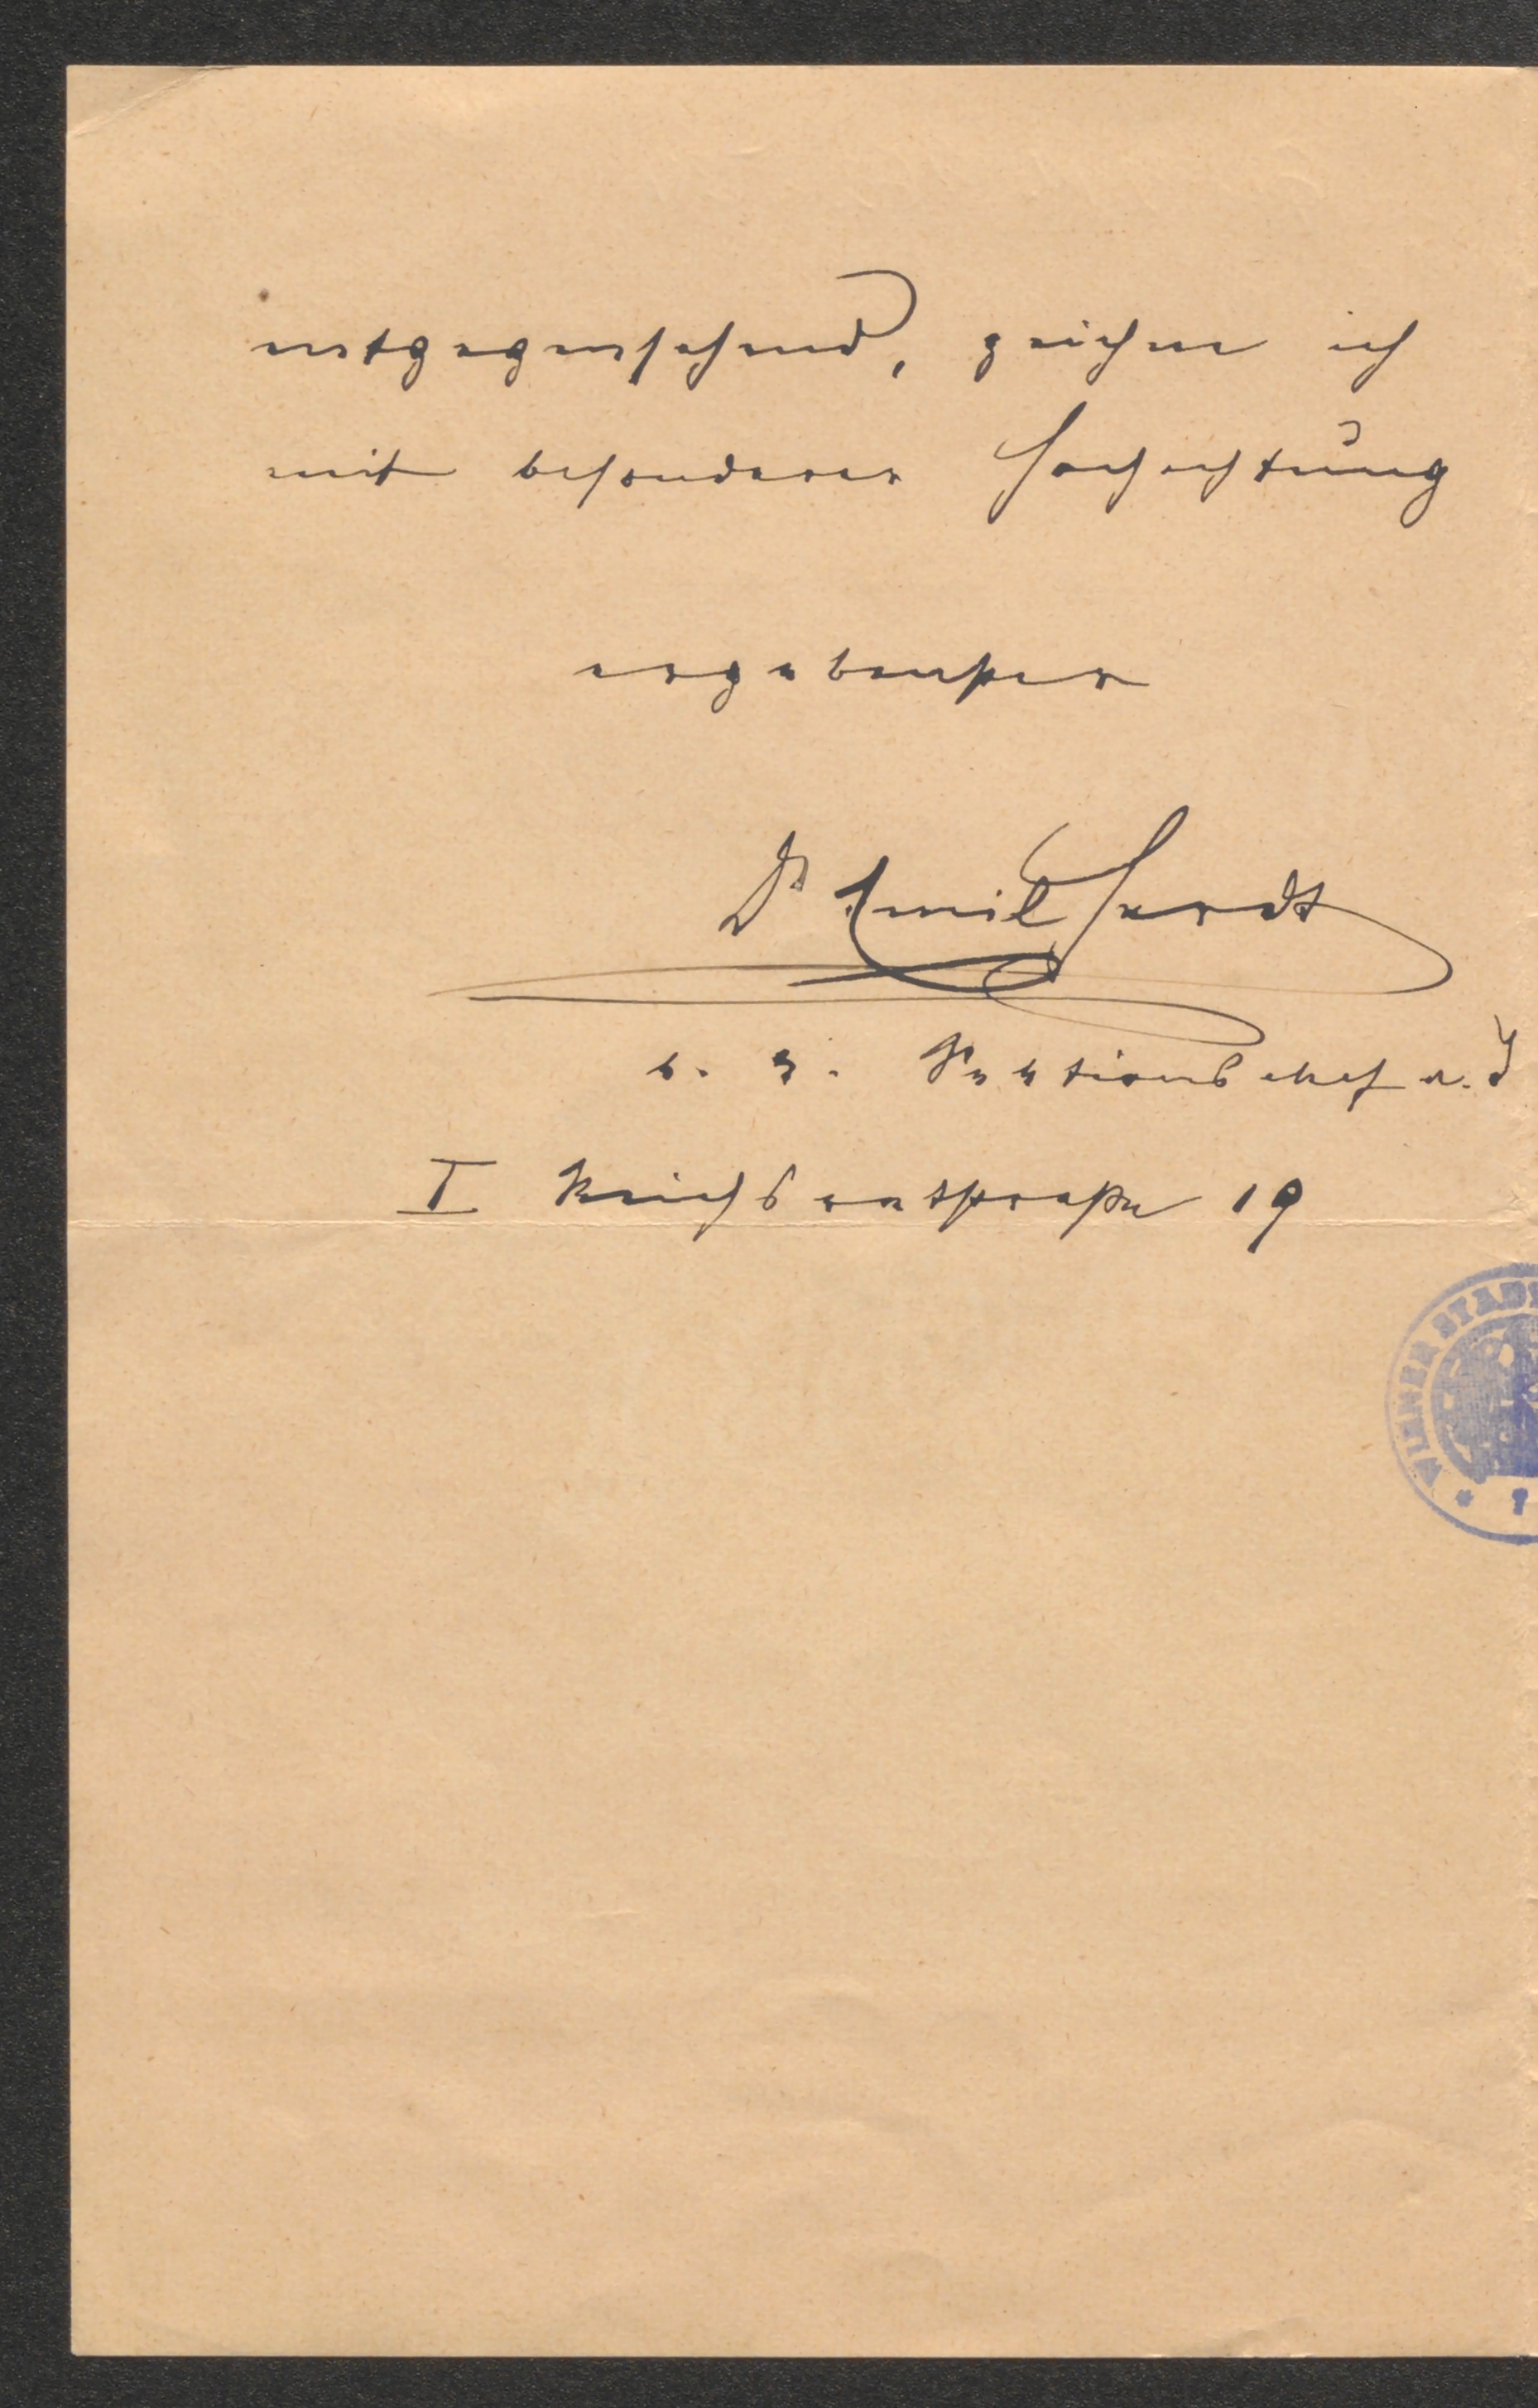 entgegensehend, zeichne ich
mit besonderer Hochachtung
ergebenster
Dr Emil Hardt
k. k. Sektionschef a. D
I Reichsratstraße 19
WIENER STADT